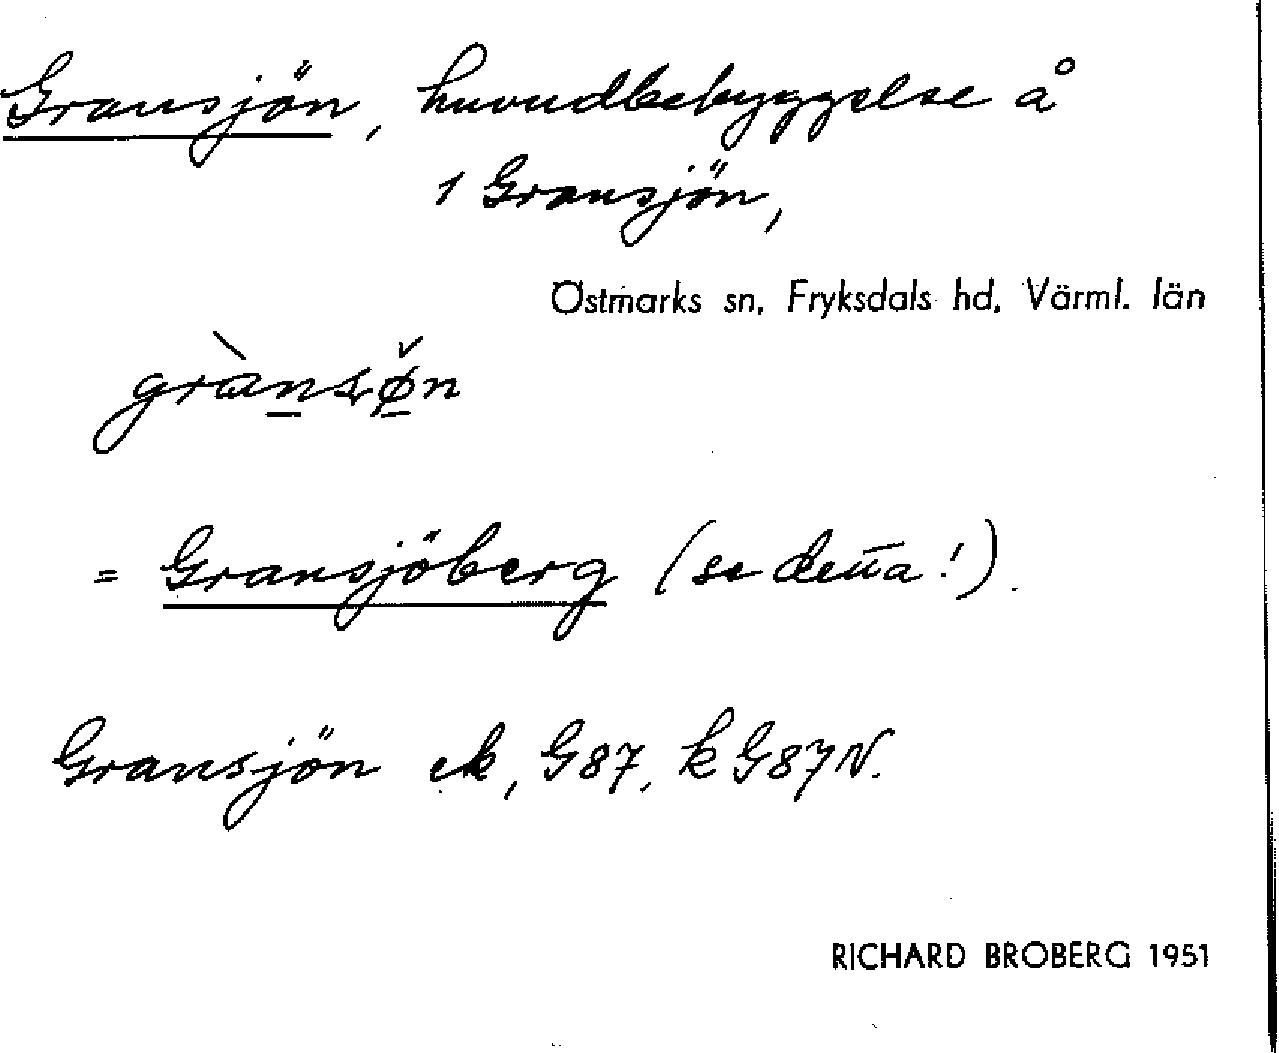 Gransjön, huvudbebyggelse å
1 Gransjön,
Östmarks sn, Fryksdals hd, Värml. län
= Gransjöberg (se detta!).
Gransjön ek, G87, k G87N.
RICHARD BROBERG 1951